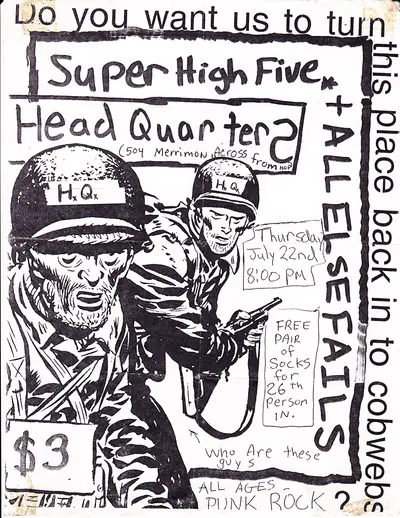 Do you want us to turn
this place back in to cobwebs
?
Super High Five *
+ ALL ELSE FAILS
Head Quarters
(504 Merrimon, Across from HOP
H.Q.
H.Q.
Thursday
July 22nd
8:00 PM
FREE
PAIR
of
Socks
for
26th
person
IN.
$3
who Are these
guys
ALL AGES -
PUNK ROCK